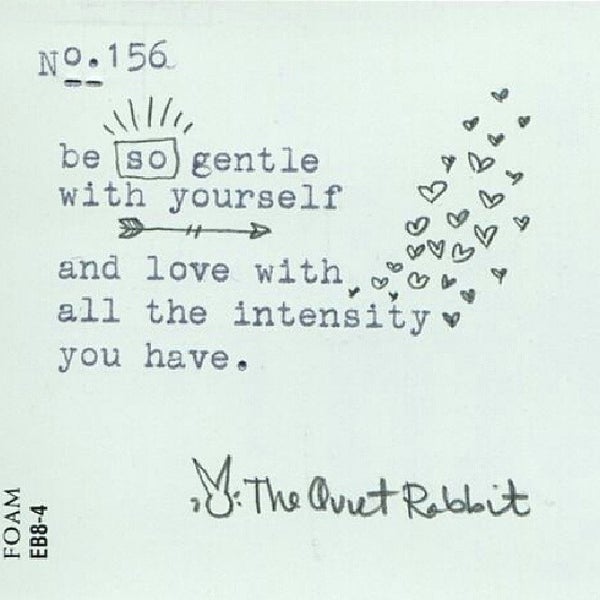 No.156
be so gentle
with yourself
and love with
all the intensity
you have.
The Quiet Rabbit
FOAM
EB8-4